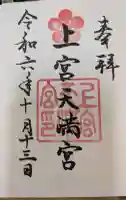 奉拝
上宮天満宮
上宮
宮印
令和六年十月十三日